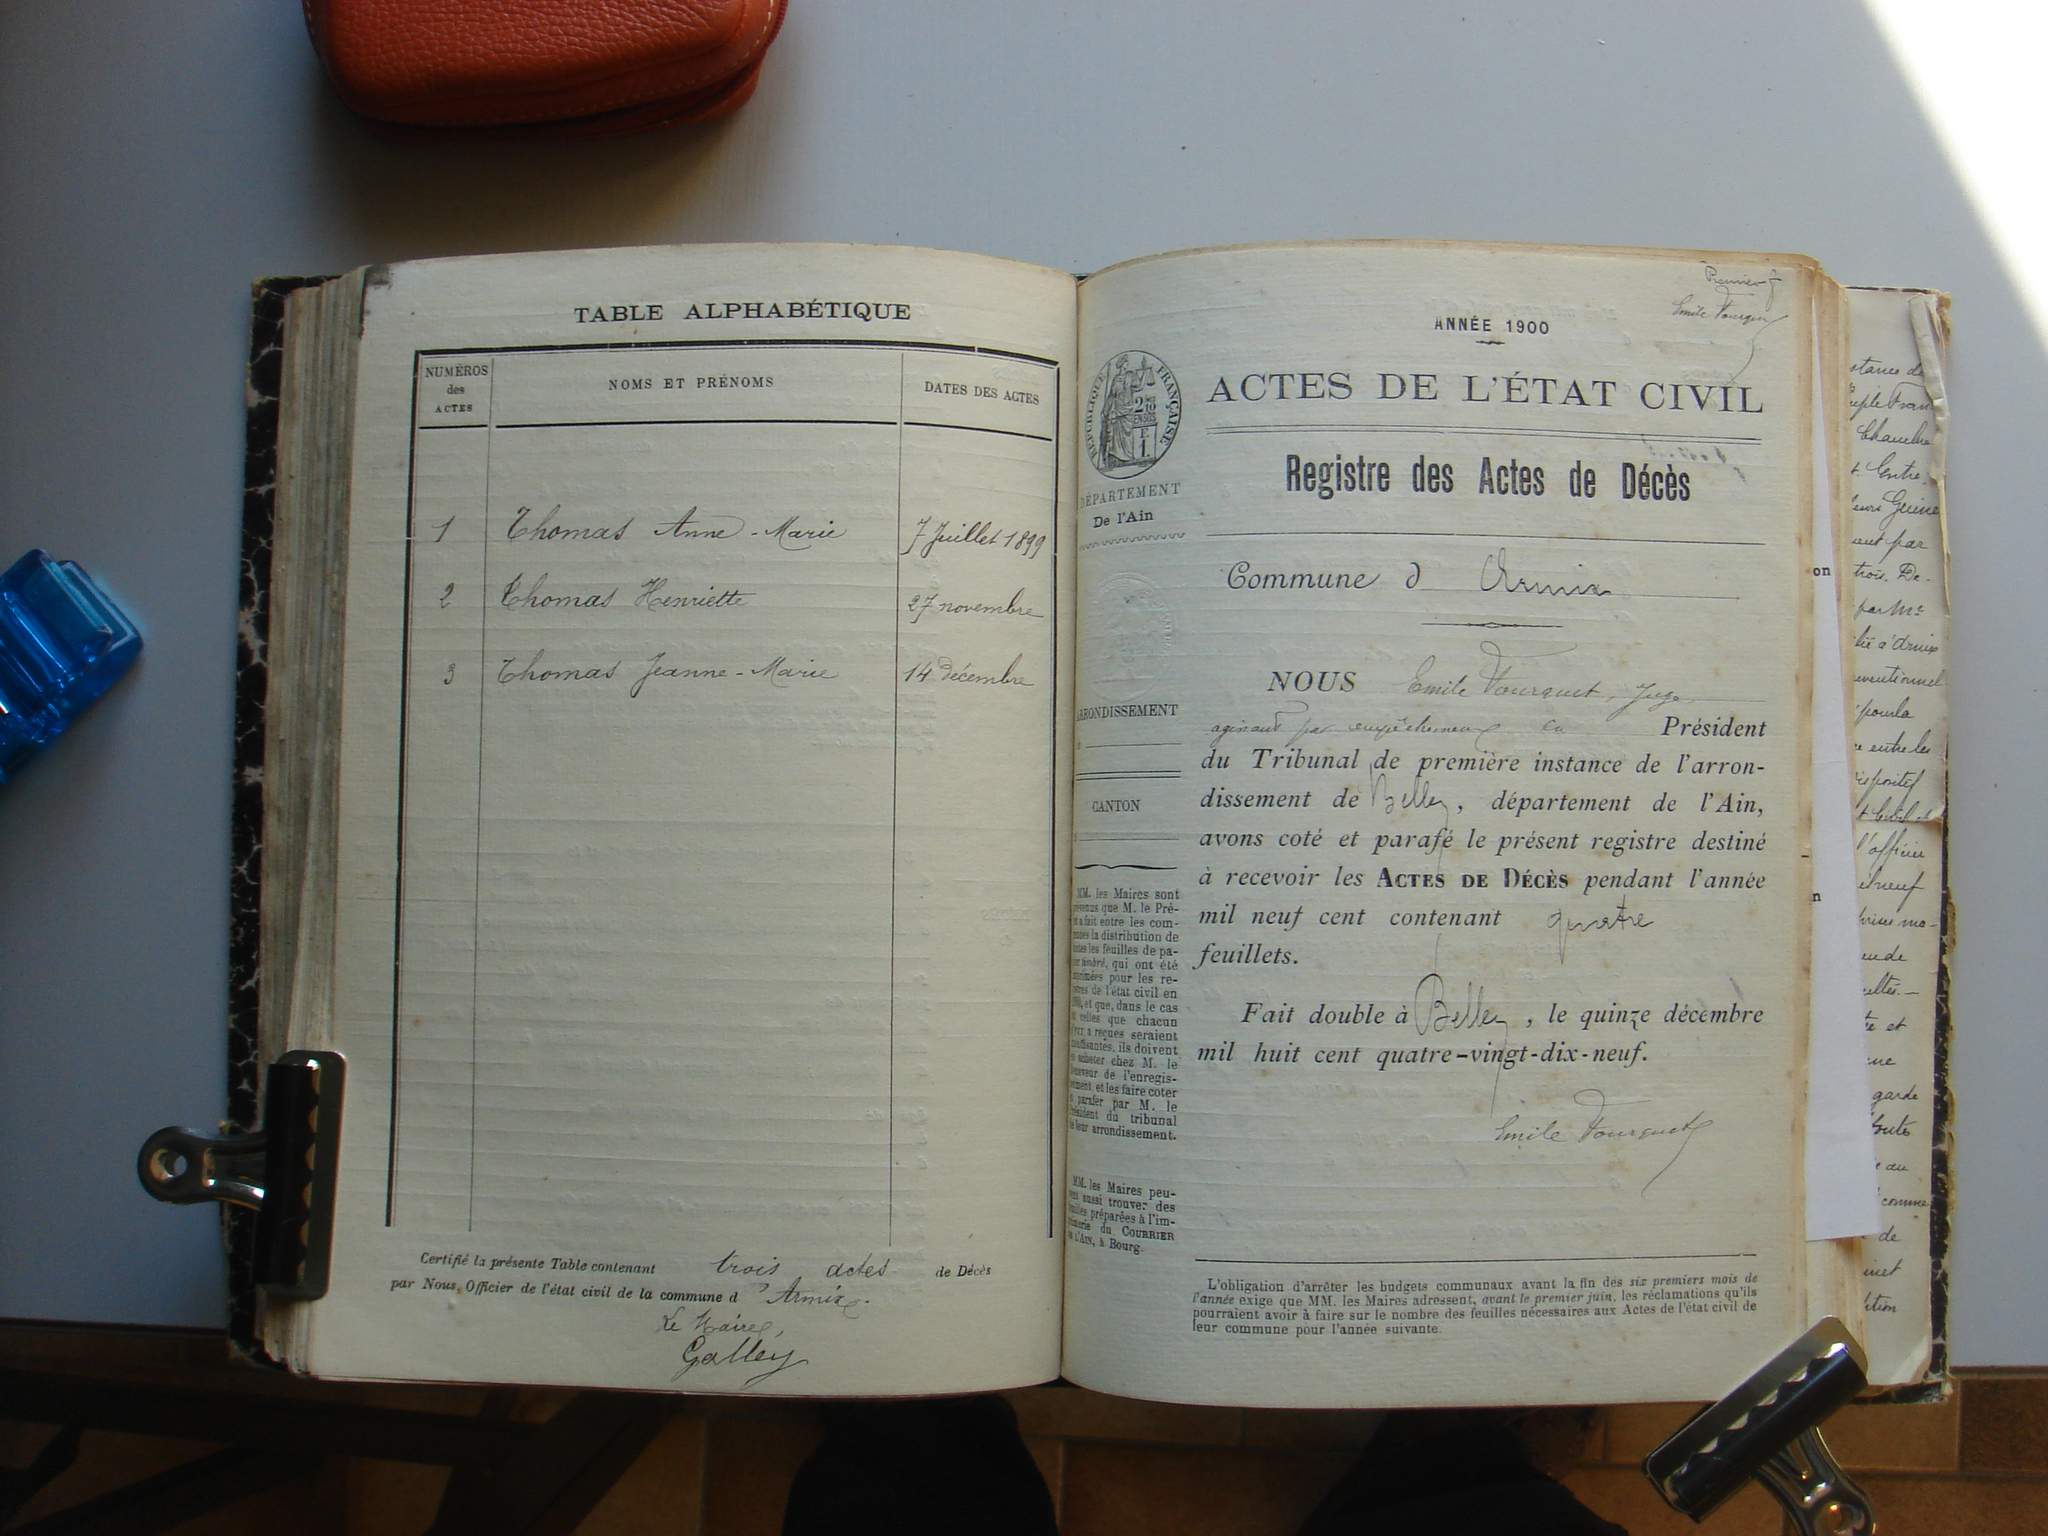 TABLE ALPHABÉTIQUE
NUMÉROS des ACTES
NOMS ET PRÉNOMS
DATES DES ACTES
1 Thomas Anne-Marie 7 Juillet 1899
2 Thomas Henriette 27 novembre
3 Thomas Jeanne-Marie 14 Décembre
Certifié la présente Table contenant trois actes de Décès
par Nous, Officier de l'état civil de la commune d'Armix.
Le Maire,
Galley
Premier f
Emile Fourquet
ANNÉE 1900
ACTES DE L'ÉTAT CIVIL
RÉPUBLIQUE FRANÇAISE
DÉPARTEMENT
De l'Ain
Registre des Actes de Décès
Commune d Armix
NOUS Emile Fourquet, Juge
agissant par empêchement du Président
du Tribunal de première instance de l'arron-
dissement de Belley, département de l'Ain,
avons coté et parafé le présent registre destiné
à recevoir les ACTES DE DÉCÈS pendant l'année
mil neuf cent contenant quatre
feuillets.
Fait double à Belley, le quinze décembre
mil huit cent quatre-vingt-dix-neuf.
Emile Fourquet
L'obligation d'arrêter les budgets communaux avant la fin des six premiers mois de
l'année exige que MM. les Maires adressent, avant le premier juin, les réclamations qu'ils
pourraient avoir à faire sur le nombre des feuilles nécessaires aux Actes de l'état civil de
leur commune pour l'année suivante.
ARRONDISSEMENT
CANTON
MM. les Maires sont
prévenus que M. le Pré-
fet a fait entre les com-
munes la distribution de
toutes les feuilles de pa-
pier timbré, qui ont été
imprimées pour les re-
gistres de l'état civil en
et que, dans le cas
où celles que chacun
d'eux a reçues seraient
insuffisantes, ils doivent
en acheter chez M. le
Receveur de l'enregis-
trement et les faire coter
et parafer par M. le
Président du tribunal
de leur arrondissement.
MM. les Maires peu-
vent aussi trouver des
feuilles préparées à l'im-
primerie du COURRIER
DE L'AIN, à Bourg.